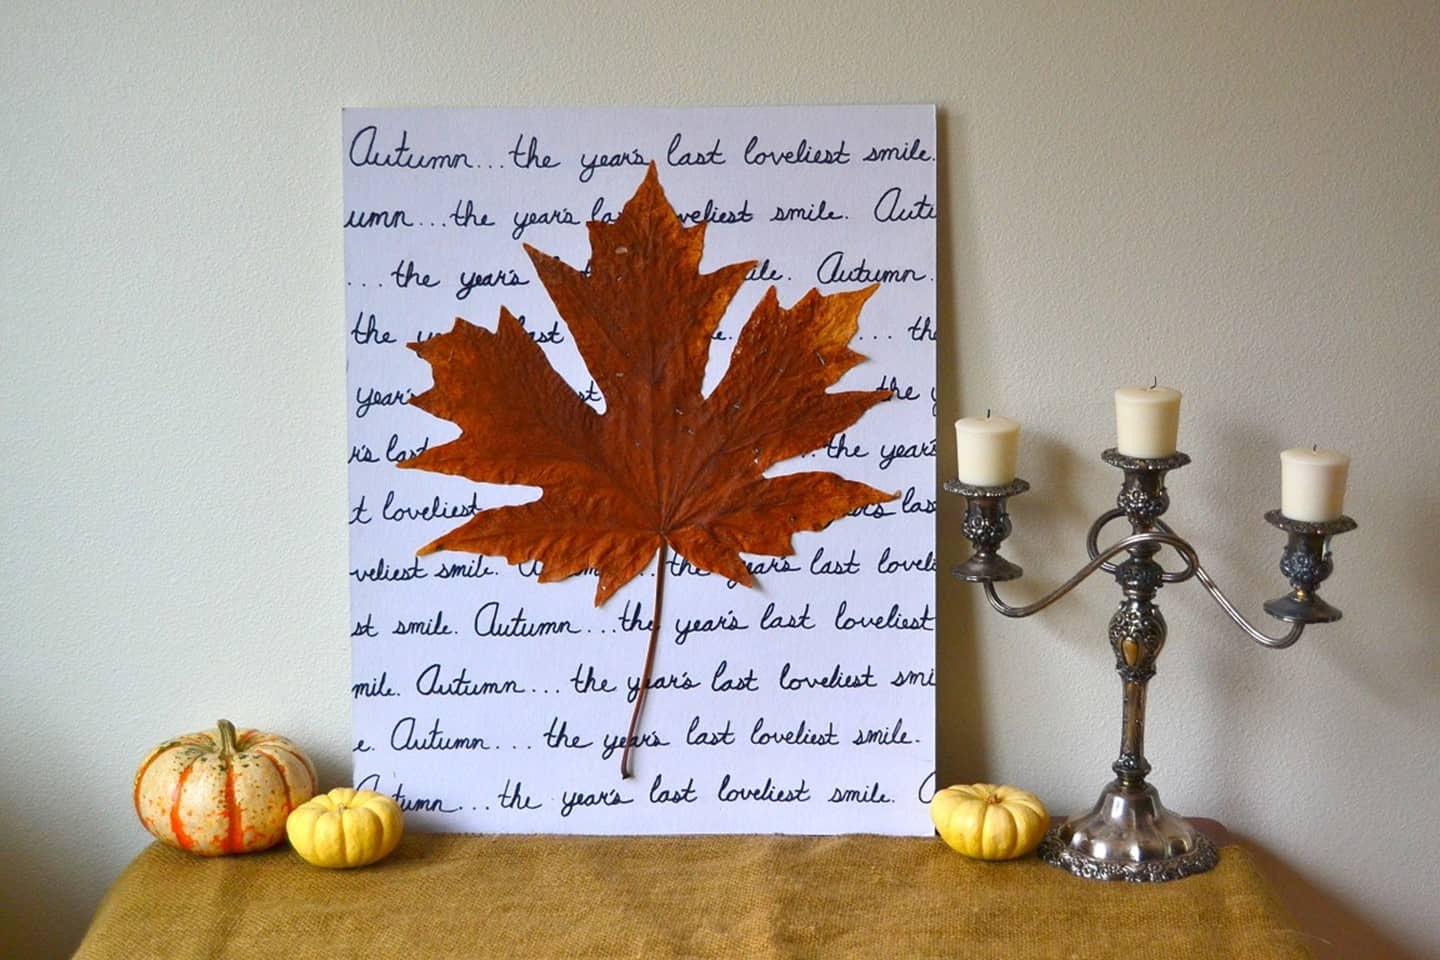 Autumn...the year's last loveliest smile.
umn...the year's la veliest smile. Autu
...the year's ile. Autumn.
the ye ast e. ... the
year's st the y
r's last .the year's
t loveliest year's las
veliest smile. Autumn...the year's last loveli
st smile. Autumn...the year's last loveliest
mile. Autumn... the year's last loveliest smi
e. Autumn... the year's last loveliest smile.
Autumn...the year's last loveliest smile. A